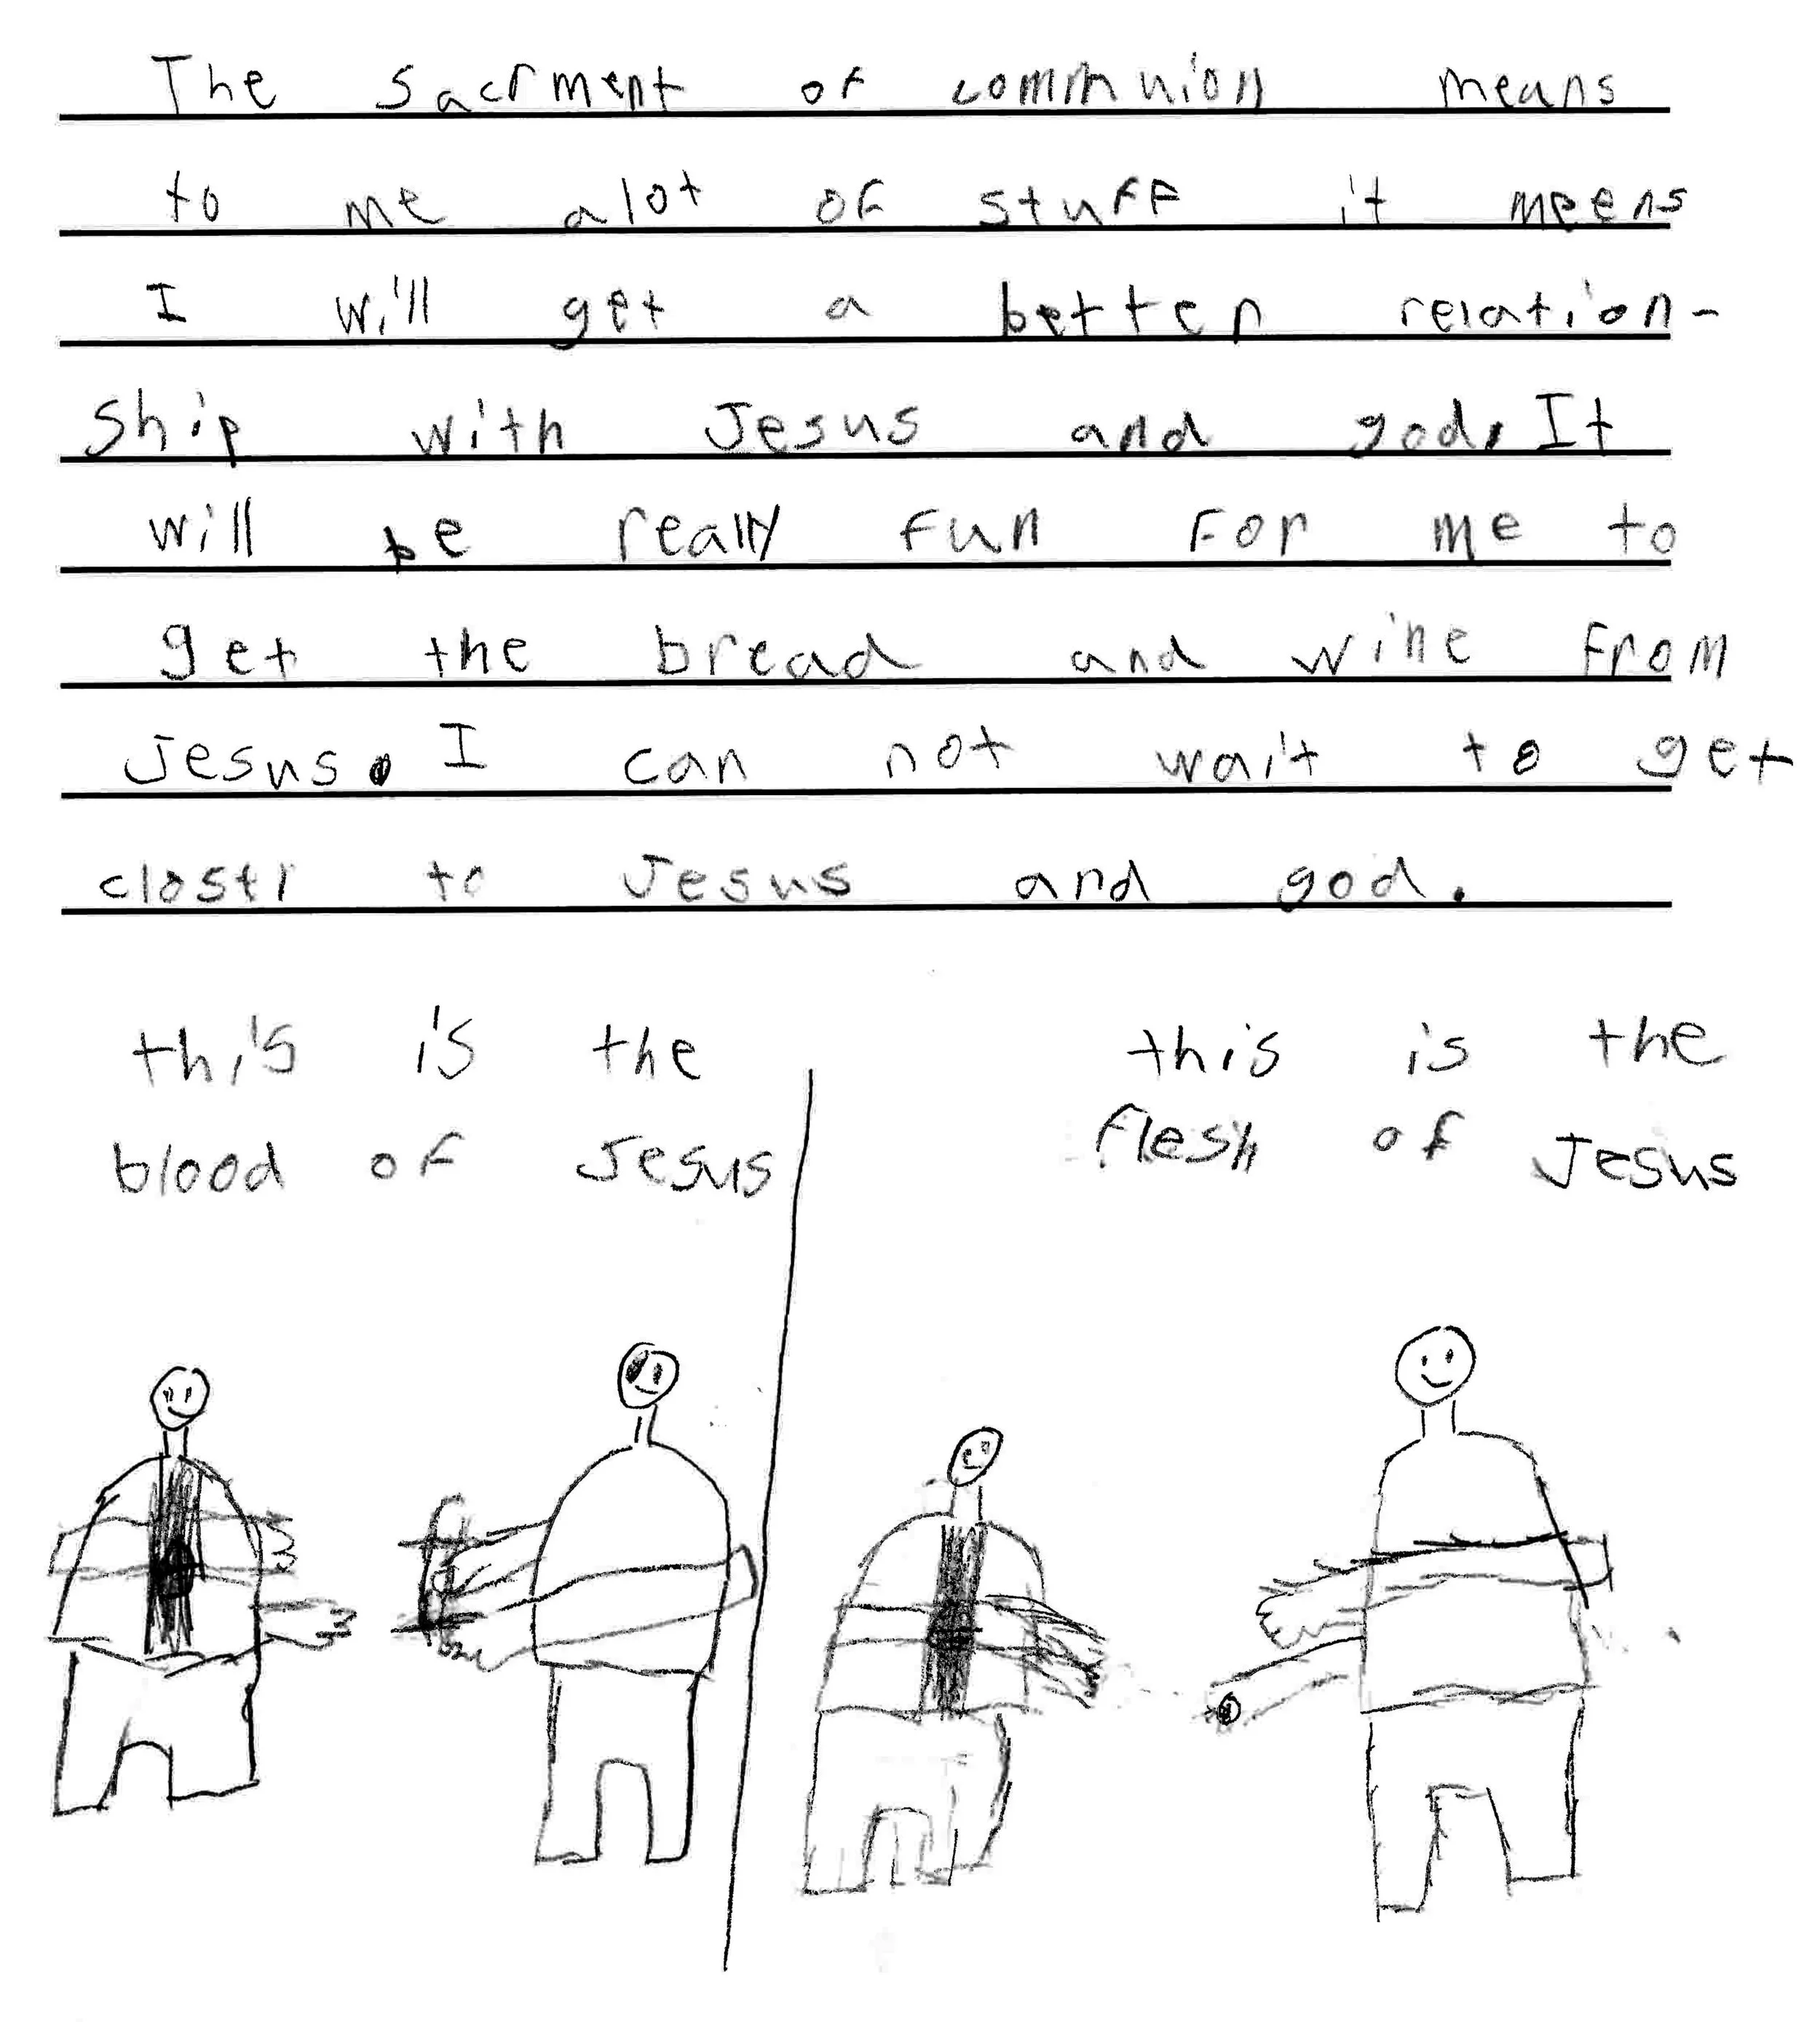 The sacrment of commnion means
to me alot of stuff it meens
I will get a better relation-
ship with Jesus and god. It
will be really fun for me to
get the bread and wine from
Jesus. I can not wait to get
closer to Jesus and god.
this is the
blood of Jesus
this is the
flesh of Jesus